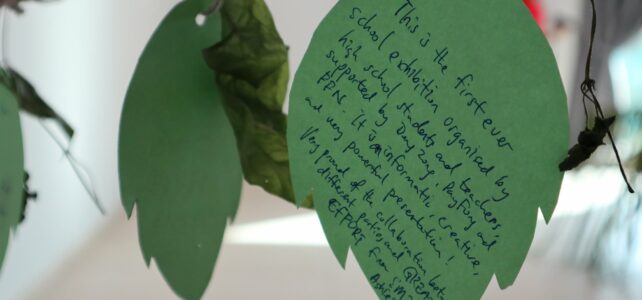 This is the first ever
school exhibition organised by
high school students and teachers
supported by
PPN. It is informatic, creative,
and very powerful presentation!
Very proud of the collaboration betw
different parties and GREAT
EFFORT from